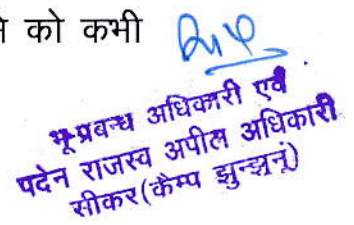 को कभी
भू-प्रबन्ध अधिकारी एवं
पदेन राजस्व अपील अधिकारी
सीकर(कैम्प झुन्झुनूं)